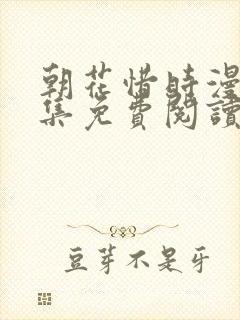 朝花惜時漫
集免費閱讀
豆芽不是牙